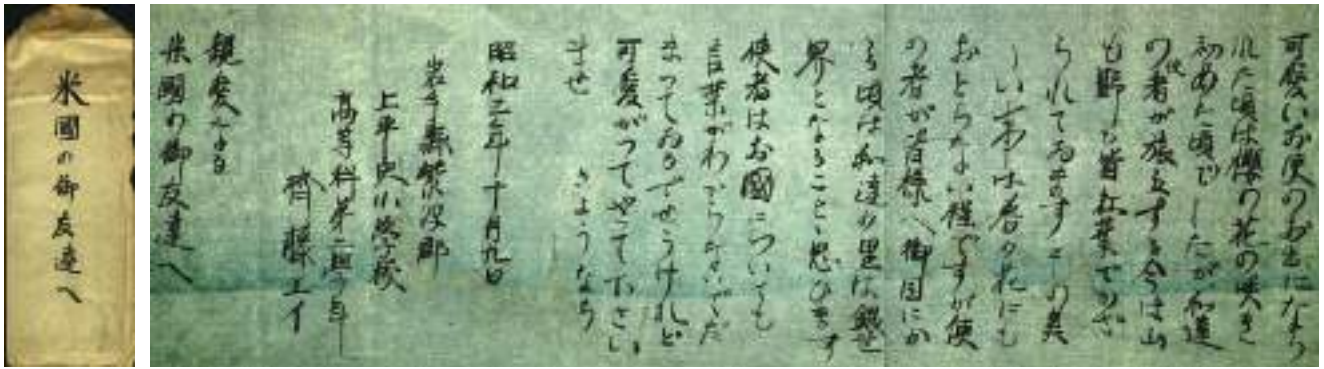 米國の御友達へ
可愛いお使のお出になら
れた頃は櫻の花の咲き
初めた頃でしたが私達
の使者が旅立する今は山
も野も皆紅葉でかざ
られてゐますこの美
しい事は春の花にも
おとらない程ですが使
の者が皆様へ御目にか
る頃は私達の里は銀世
界となることゝ思ひます
使者はお國についても
言葉がわからないでだ
まつてゐるでせうけれど
可愛がつてやつて下さい
ませ さようなら
昭和二年十月九日
岩手縣紫波郡
上平沢小学校
高等科第二學年
齊藤エイ
親愛なる
米國の御友達へ